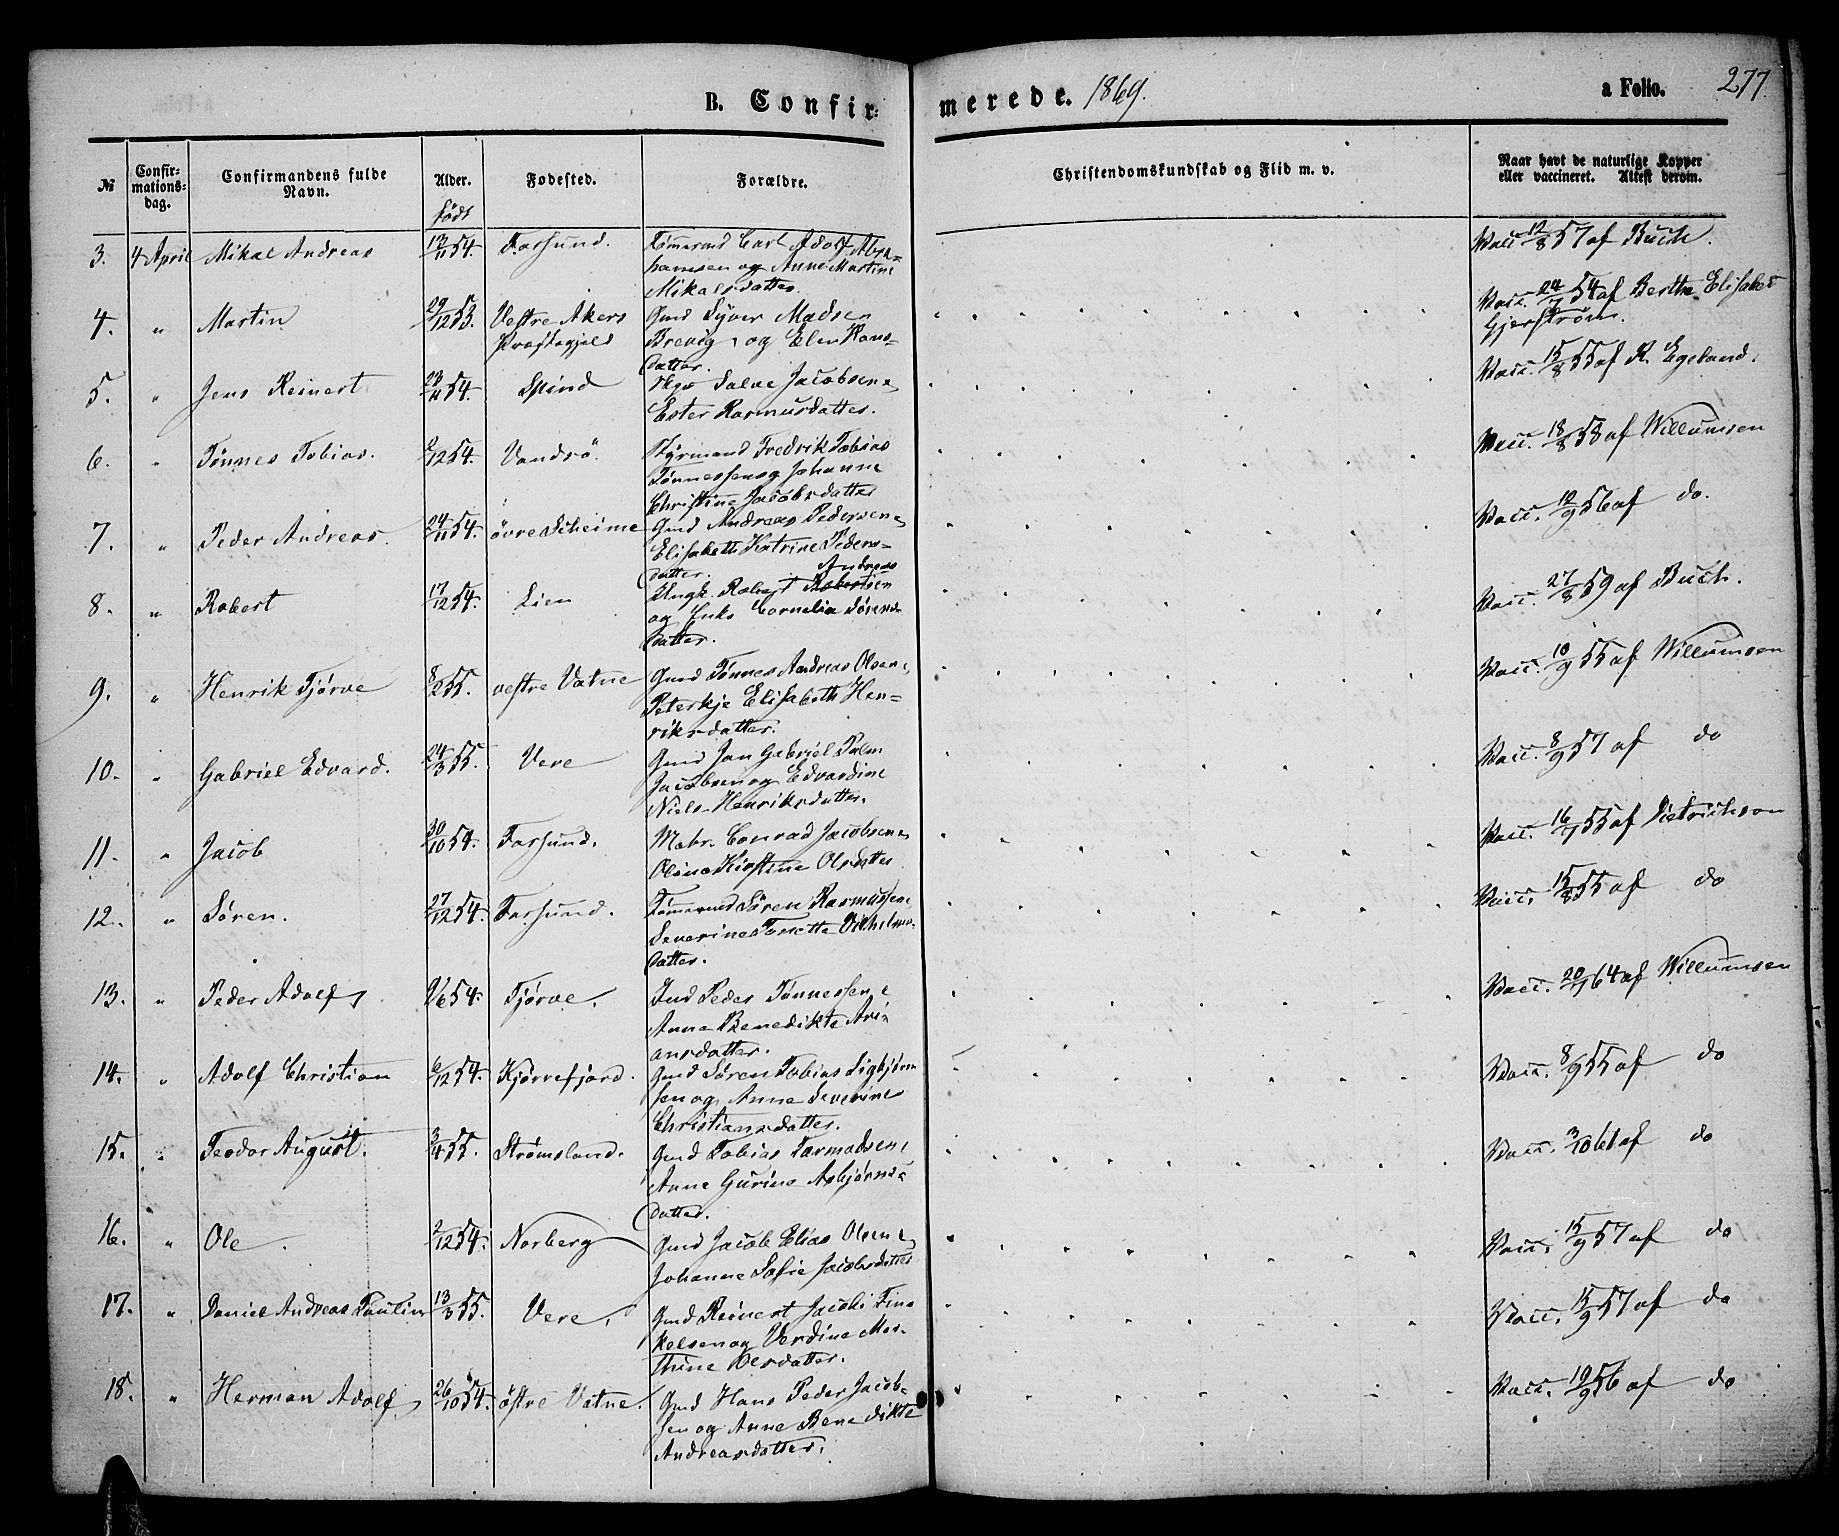 B. Confirmerede. 1869. a Folio. 277
№ Confirmations-dag. Confirmandens fulde Navn. Alder. født Fødested. Forældre. Christendomskundskab og Flid m. v. Naar havt de naturlige Kopper eller vaccineret. Attest derom.
3. 4 April Mikal Andreas 13/11 54. Farsund. Tømmermd Carl Adolf Abra=
hamsen og Anne Martine
Mikalsdatter.
Vacc. 12/8 57 af Buch.
4. " Martin 29/12 53. Vestre Akers
Præstegjeld
Gmd Syver Madsen
Brevig og Elen Hans=
datter.
Vacc. 24/7 54 af Berthe Elisabet
Gjerstrøm.
5. " Jens Reinert 23/11 54. Spind
Salve Jacobsen
Ester Rasmusdatter.
Vacc. 15/8 55 af R. Egeland.
6. " Tønnes Tobias. 12 54. Vandsö.
Styrmand Fredrik Tobias
Tønnessen og Johanne
Christine Jacobsdatter
Vacc. 18/8 58 af Willumsen
7. " Peder Andreas. 24/11 54. övre Skeime
Gmd Andreas Pedersen
Elisabeth Katrine Peders=
datter.
Vacc. 12/9 56 af do.
8. " Robert 17/12 54. Lien
Ungk. Robert Andreas Robertsen
og Enke Cornelia Sørens
datter.
Vacc. 27/8 59 af Buch.
9. " Henrik Tjørve 8/2 55. vestre Vatne
Gmd Tønnes Andreas Olsen
Peterkje Elisabeth Hen=
riksdatter.
Vacc. 10/9 55 af Willumsen
10. " Gabriel Edvard. 24/3 55. Vere
Gmd Jan Gabriel Palm
Jacobsen og Edvardine
Niels-Henriksdatter.
Vacc. 8/9 57 af do
11. " Jacob 30/10 54. Farsund.
Matr. Conrad Jacobsen
Olene Kirstine Olsdatter
Vacc. 16/7 55 af Dietrichson
12. " Søren. 27/12 54. Farsund.
Tømmermd Søren Rasmussen
Severine Tonette Vilhelms-
datter.
Vacc. 15/8 55 af do
13. " Peder Adolf 1/6 54. Tjørve.
Ind Peder Tønnessen
Anne Benedikte Ari=
ansdatter.
Vacc. 20/11 64 af Willumsen
14. " Adolf Christian 6/12 54. Kjørrefjord.
Gmd Søren Tobias Sigbjørn
sen og Anne Severine
Christiansdatter.
Vacc. 8/9 55 af do
15. " Teodor August. 3/4 55. Strømsland.
Gmd Tobias Tarmodsen
Anne Gurine Asbjørns=
datter.
Vacc. 3/10 61 af do
16. " Ole. 2/12 54. Norberg
Gmd Jacob Elias Olsen
Johanne Sofie Jacobsdatter
Vacc. 15/9 57 af do
17. " Daniel Andreas Paulin 13/3 55. Vere.
Gmd Reinert Jacobi Fin=
kelsen og Verdine Mar=
thine Olsdatter.
Vacc. 15/9 57 af do
18. " Herman Adolf 26/10 54. östre Vatne.
Gmd Hans Peder Jacob-
sen og Anne Benedikte
Andreasdatter.
Vacc. 19/9 56 af do